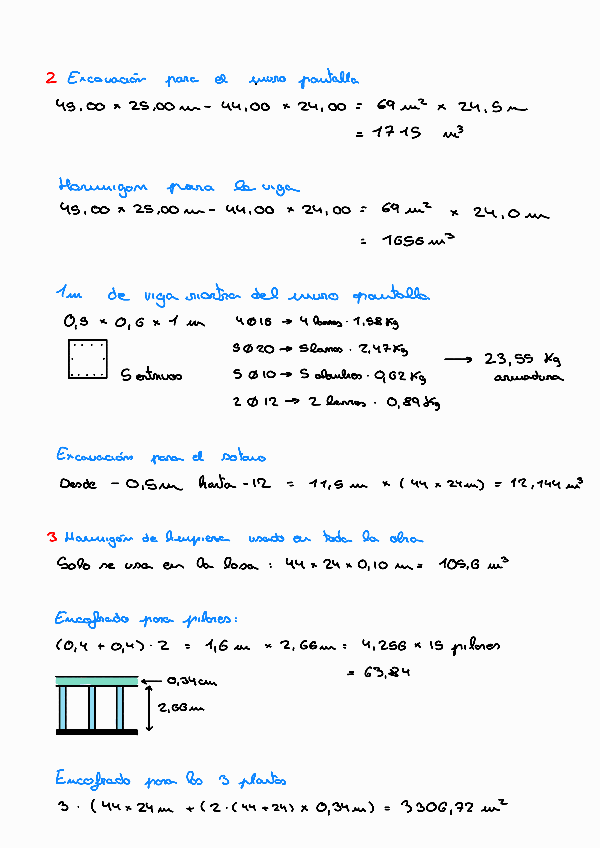 2 Excavación para el muro pantalla
45,00 × 25,00 m - 44,00 × 24,00 = 69 m² × 24,5 m
= 1715 m³
Hormigón para la viga
45,00 × 25,00 m - 44,00 × 24,00 = 69 m² × 24,0 m
= 1656 m³
1m de viga riostra del muro pantalla
0,5 × 0,6 × 1 m
4 Ø 16 → 4 barras · 1,58 Kg
5 Ø 20 → 5 barras · 2,47 Kg
5 Ø 10 → 5 · 0,62 Kg
2 Ø 12 → 2 barras · 0,89 Kg
→ 23,55 Kg
armadura
5 estribos
Excavación para el sótano
Desde - 0,5 m hasta -12 = 11,5 m × (44 × 24m) = 12,144 m³
3 Hormigón de limpieza usado en toda la obra
Solo se usa en la losa : 44 × 24 × 0,10 m = 105,6 m³
Encofrado para pilares:
(0,4 + 0,4) · 2 = 1,6 m × 2,66 m = 4,256 × 15 pilares
= 63,84
0,34 cm
2,66 m
Encofrado para las 3 plantas
3 · (44 × 24 m + (2 · (44 + 24) × 0,34 m) = 3306,72 m²